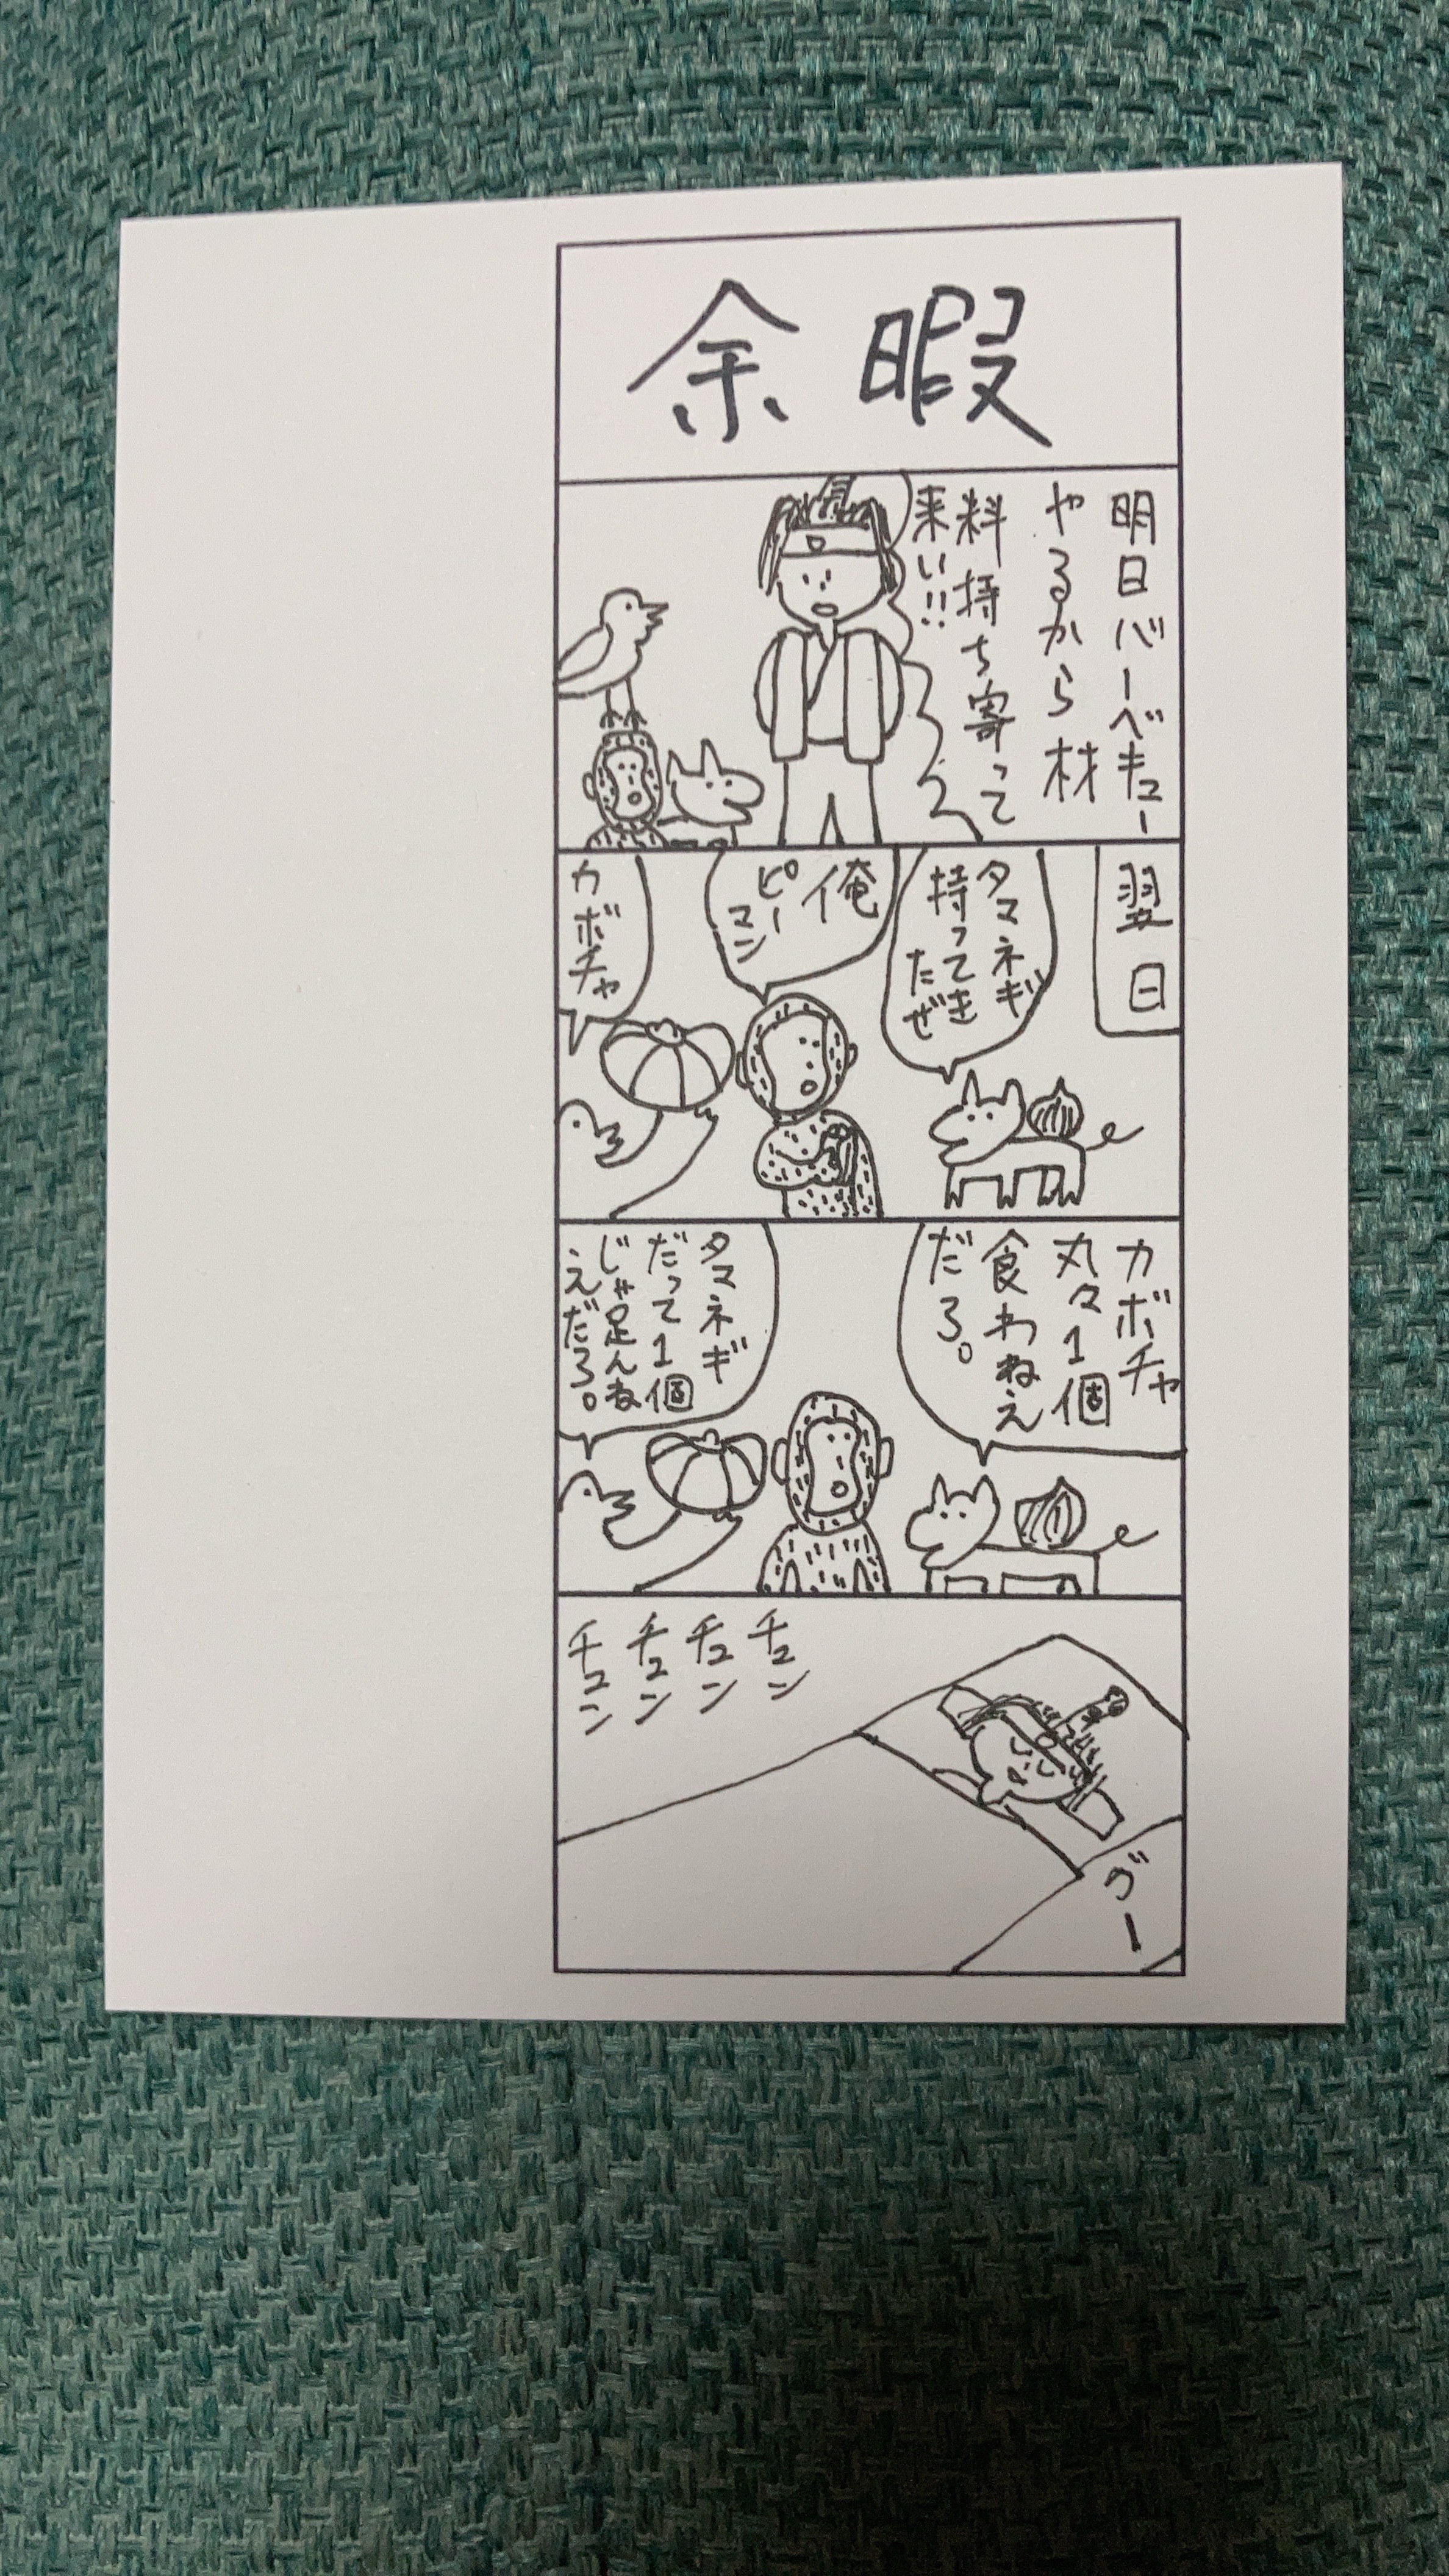 余暇
明日バーベキュー
やるから材
料持ち寄って
来い!!
翌日
タマネギ
持ってき
たぜ
俺
ピー
マン
カボチャ
カボチャ
丸々1個
食わねえ
だろ。
タマネギ
だって1個
じゃ足んね
えだろ。
グー
チュン
チュン
チュン
チュン